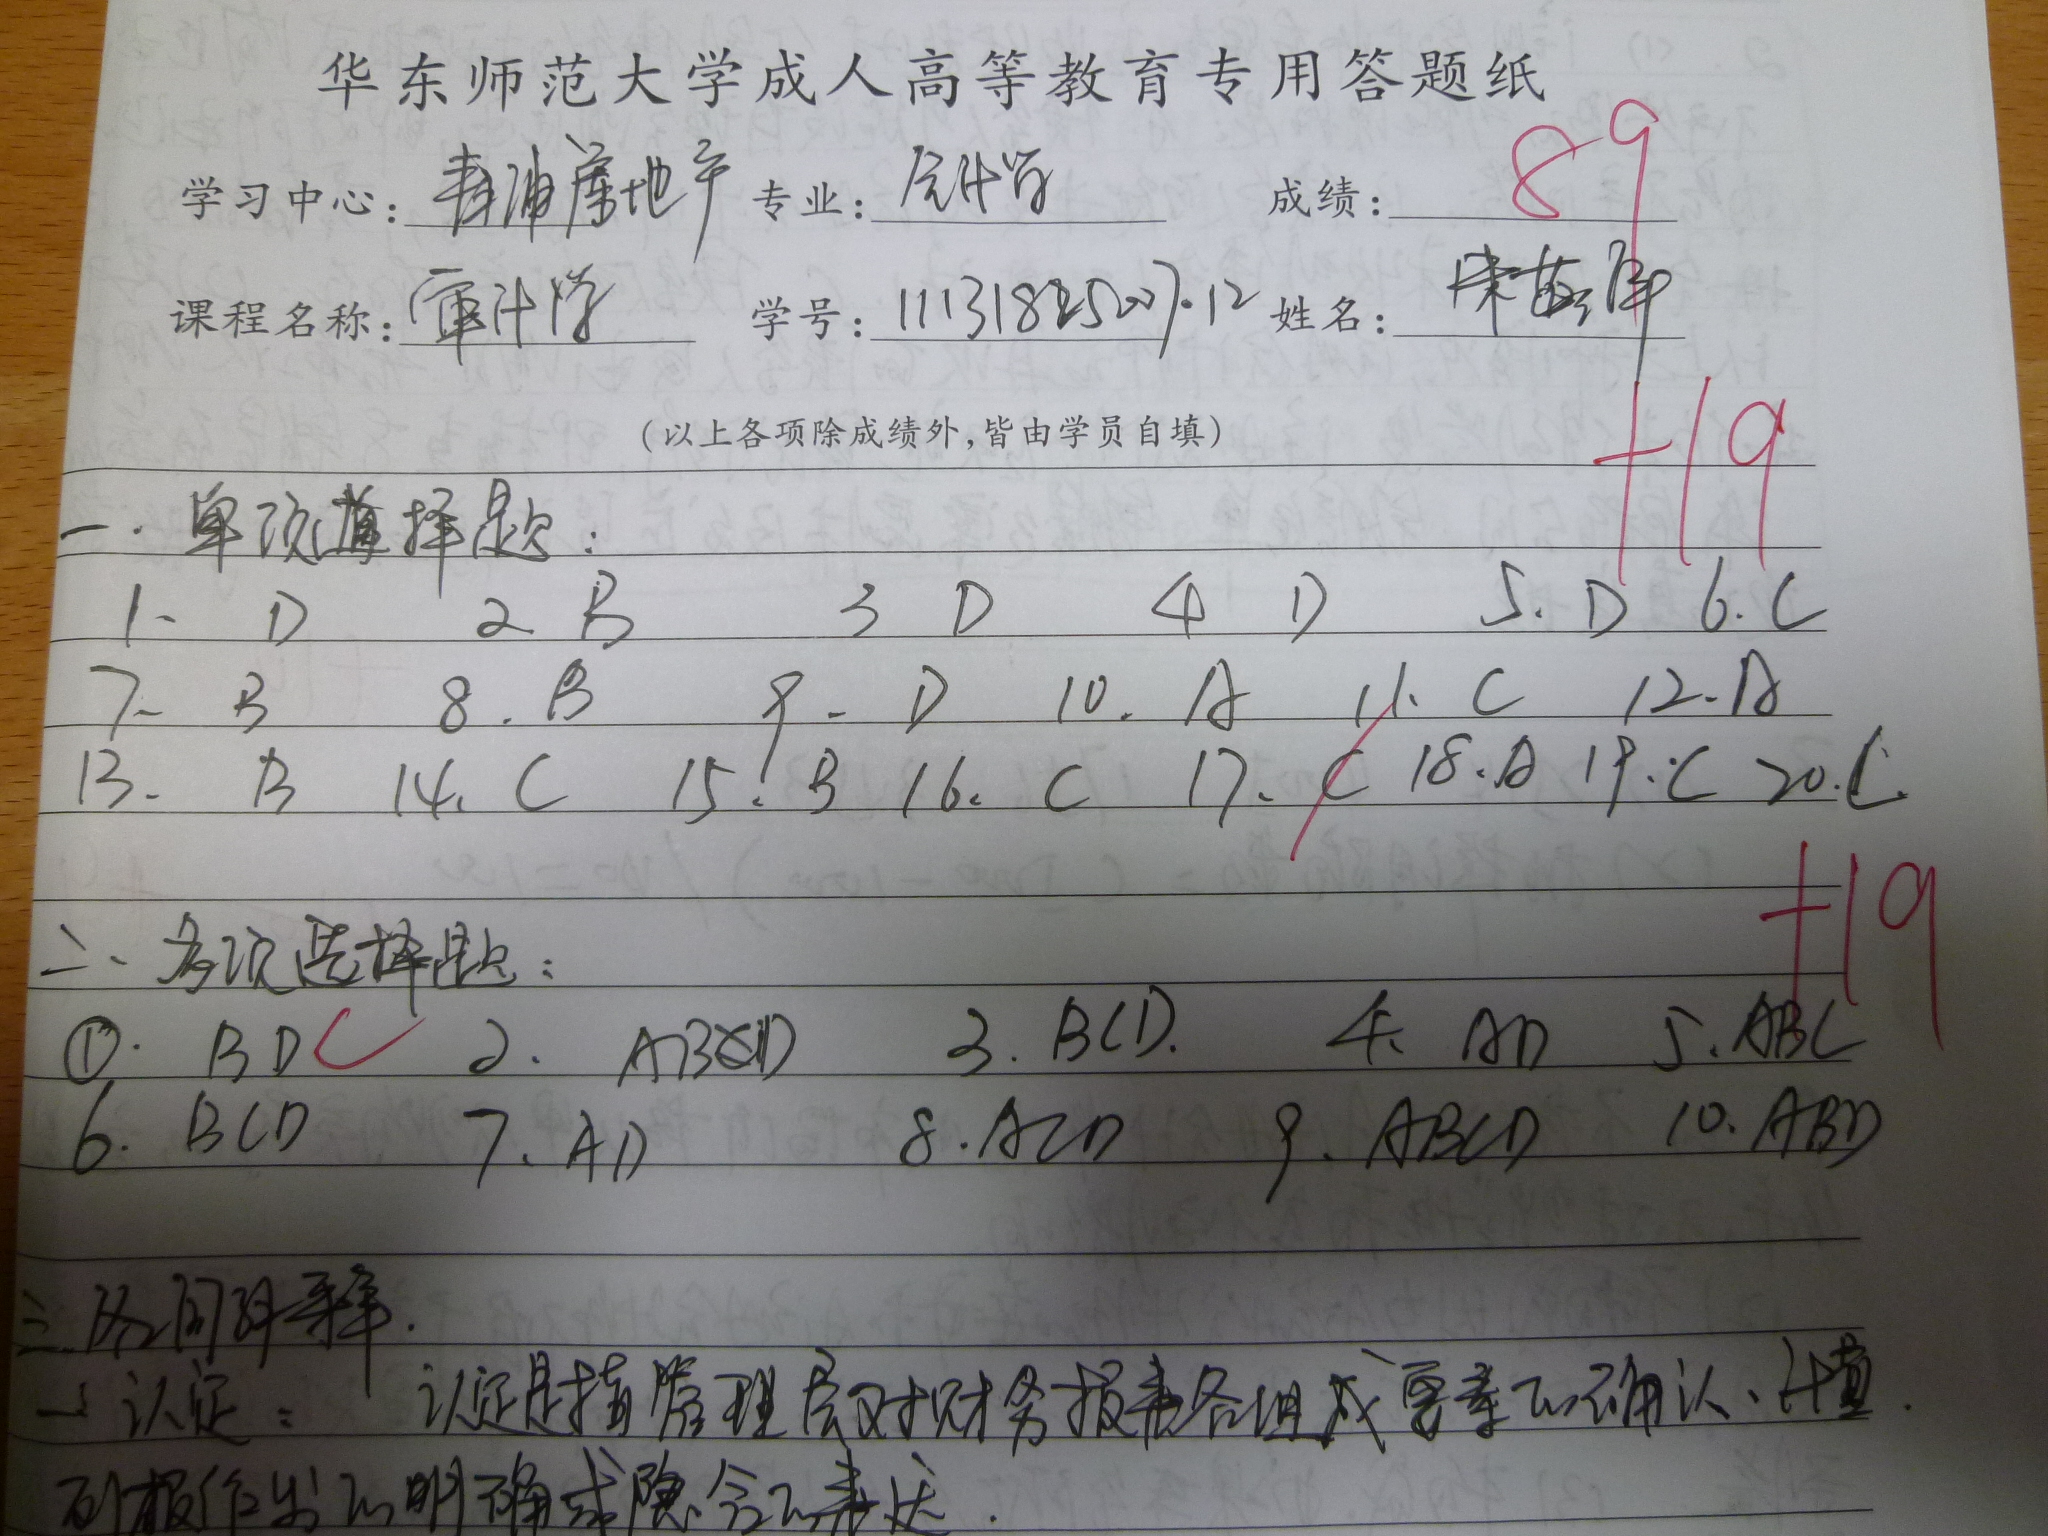 华东师范大学成人高等教育专用答题纸
学习中心: 青浦房地产 专业: 会计学 成绩: 89
课程名称: 审计学 学号: 姓名:
(以上各项除成绩外,皆由学员自填)
+19
一. 单项选择题:
1. D 2 B 3 D 4 D 5. D 6. C
7. B 8. B 9. D 10. A 11. C 12. A
13. B 14. C 15. B 16. C 17. C 18. A 19. C 20. C
+19
二、多项选择题:
①. BD C 2. ABCD 3. BCD. 4. AD 5. ABC
6. BCD 7. AD 8. ACD 9. ABCD 10. ABD
三 名词解释.
1 认定: 认定是指管理层对财务报表各组成要素的确认、计量.
列报作出的明确或隐含的表达.